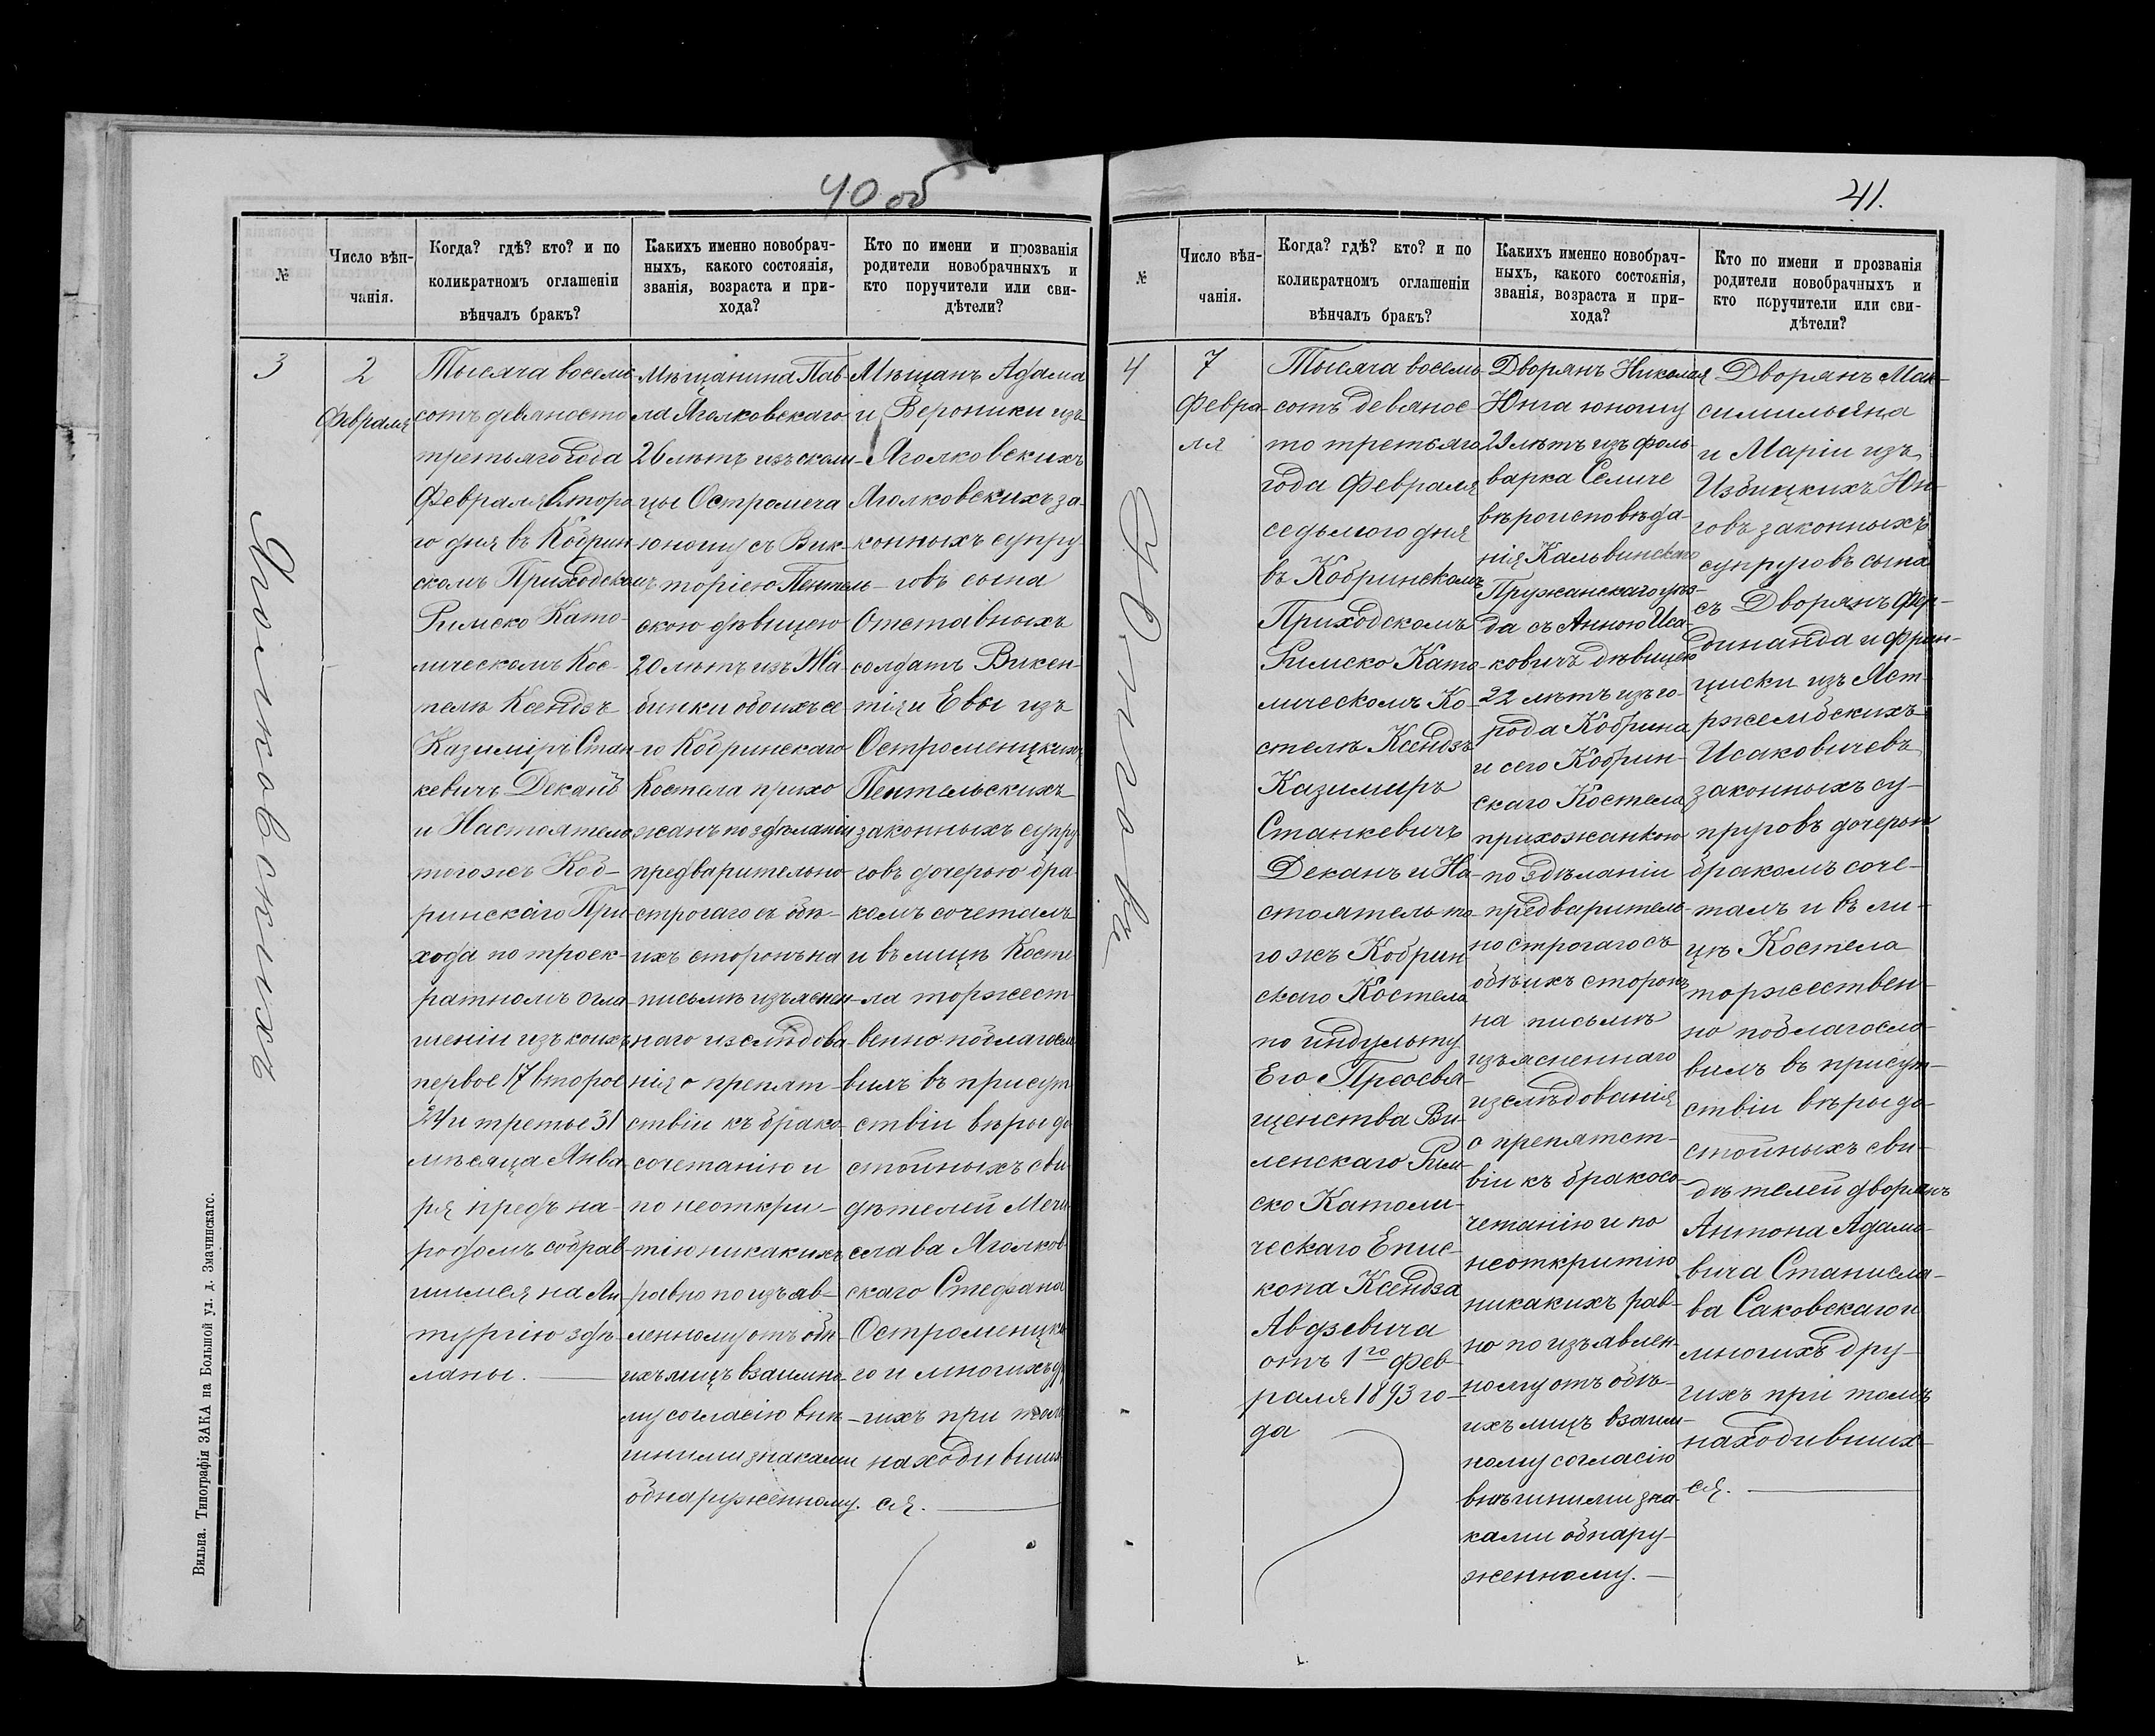 40 об
№
Число вѣн-
чанія.
Когда? гдѣ? кто? и по
коликратномъ оглашеніи
вѣнчалъ бракъ?
Какихъ именно новобрач-
ныхъ, какого состоянія,
званія, возраста и при-
хода?
Кто по имени и прозванія
родители новобрачныхъ и
кто поручители или сви-
дѣтели?
3
Яголковскихъ
2
Февраля
Тысяча восемь
сотъ девяносто
третьяго года
Февраля второ
го дня въ Кобрин
скомъ Приходскомъ
Римско Като-
лическомъ Кос-
телѣ Ксендзъ
Казиміръ Стан
кевичъ Деканъ
и Настоятель
тогожъ Коб-
ринскаго При
хода по троек-
ратномъ огла
шеніи изъ коихъ
первое 17 второе
24 и третье 31
мѣсяца Янва
ря предъ на-
родомъ собрав
шимся на Ли
тургію здѣ
ланы.
Мѣщанина Пав-
ла Яголковскаго
26 лѣтъ изъ околи-
цы Остромеча
юношу съ Вик-
торіею Пентель-
скою дѣвицею
20 лѣтъ изъ Жа-
бинки обоихъ се
го Кобринскаго
Костела прихо
жанъ по здѣланіи
предварительно
строгаго съ обѣ-
ихъ сторонъ на
письмѣ изъяснен-
наго изслѣдова-
нія о препят-
ствіи къ брако-
сочетанію и
по неоткры-
тію никакихъ
равно по изъяв-
ленному отъ обѣ-
ихъ лицъ взаимно-
му согласію внѣ-
шними знаками
обнаруженному.
Мѣщанъ Адама
и Вероники изъ
Яголковскихъ
Яголковскихъ за-
конныхъ супру-
говъ сына
Отставныхъ
солдатъ Викен-
тія и Евы изъ
Остроменцкихъ
Пентельскихъ
законныхъ супру
говъ дочерью бра
комъ сочеталъ
и въ лицѣ Косте
ла торжест
венно поблагосло
вилъ въ присут
ствіи вѣры до
стойныхъ сви
дѣтелей Мечи
слава Яголков
скаго Стефана
Остроменцка
го и многихъ др
гихъ при томъ
находивших
ся.
Вильна. Типографія ЗАКА на Большой ул. д. Змачинскаго.
41.
№
Число вѣн-
чанія.
Когда? гдѣ? кто? и по
коликратномъ оглашеніи
вѣнчалъ бракъ?
Какихъ именно новобрач-
ныхъ, какого состоянія,
званія, возраста и при-
хода?
Кто по имени и прозванія
родители новобрачныхъ и
кто поручители или сви-
дѣтели?
4
Юнговъ
7
Февра-
ля
Тысяча восемь
сотъ девянос-
то третьяго
года Февраля
седьмого дня
въ Кобринскомъ
Приходскомъ
Римско Като-
лическомъ Ко-
стелѣ Ксендзъ
Казимиръ
Станкевичъ
Деканъ и На-
стоятель то-
гожъ Кобрин
скаго Костела
по индульту
Его Преосвя-
щенства Ви-
ленскаго Рим-
ско Католи-
ческаго Епис-
копа Ксендза
Авдзевича
отъ 1го Фев-
раля 1893 го-
да
Дворянъ Николая
Юнга юношу
29 лѣтъ изъ фоль
варка Селиче
вѣроисповѣда-
нія Кальвинскаго
Пружанскаго уѣз-
да съ Анною Иса-
ковичъ дѣвицею
22 лѣтъ изъ го-
рода Кобрина
и сего Кобрин-
скаго Костела
прихожанкою
по здѣланіи
предваритель-
но строгаго съ
обѣихъ сторонъ
на письмѣ
изъясненнаго
изслѣдованія
о препятст-
віи къ бракосо-
четанію и по
неоткрытію
никакихъ рав-
но по изъявлен-
ному отъ обѣ-
ихъ лицъ взаим-
ному согласію
внѣшними зна-
ками обнару-
женному.
Дворянъ Мак-
симильяна
и Маріи изъ
Избицкихъ Юн-
говъ законныхъ
супруговъ сына
съ Дворянъ Фер-
динанда и Фран-
циски изъ Яст-
ржембскихъ
Исаковичевъ
законныхъ су-
пруговъ дочерью
бракомъ соче-
талъ и въ ли-
цѣ Костела
торжествен-
но поблагосло-
вилъ въ присут-
ствіи вѣры до-
стойныхъ сви-
дѣтелей дворянъ
Антона Адамо-
вича Станисла-
ва Саковскаго и
многихъ дру-
гихъ при томъ
находивших-
ся.